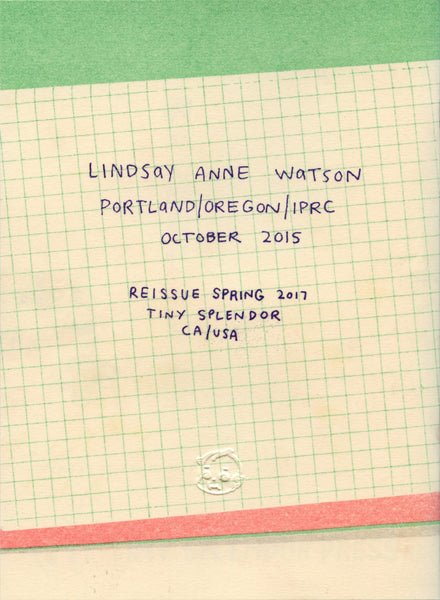 LINDSAY ANNE WATSON
PORTLAND/OREGON/IPRC
OCTOBER 2015
REISSUE SPRING 2017
TINY SPLENDOR
CA/USA